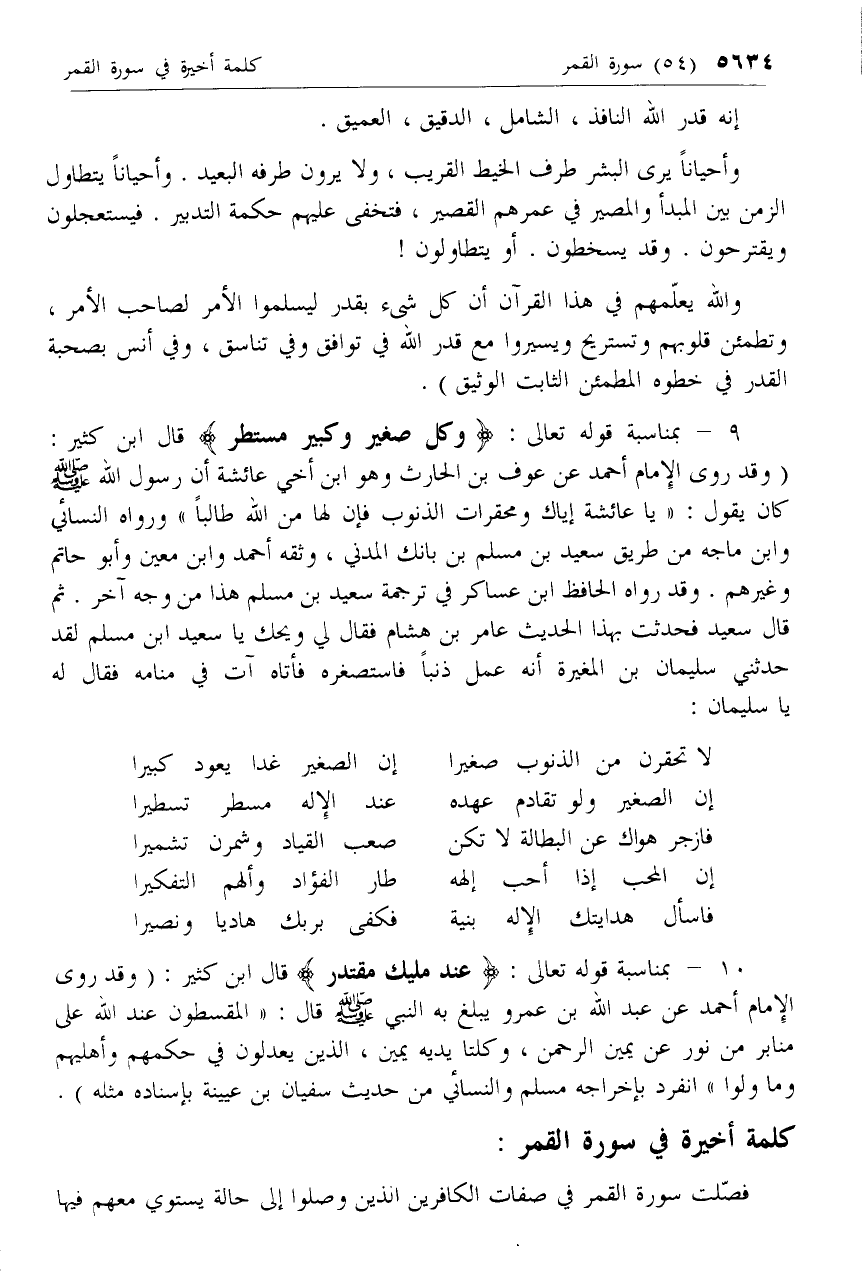 ٥٦٣٤ (٥٤) سورة القمر كلمة أخيرة في سورة القمر
إنه قدر الله النافذ ، الشامل ، الدقيق ، العميق .
وأحياناً يرى البشر طرف الخيط القريب ، ولا يرون طرفه البعيد . وأحياناً يتطاول
الزمن بين المبدأ والمصير في عمرهم القصير ، فتخفى عليهم حكمة التدبير . فيستعجلون
ويقترحون . وقد يسخطون . أو يتطاولون !
والله يعلّمهم في هذا القرآن أن كل شيء بقدر ليسلموا الأمر لصاحب الأمر ،
وتطمئن قلوبهم وتستريح ويسيروا مع قدر الله في توافق وفي تناسق ، وفي أنس بصحبة
القدر في خطوه المطمئن الثابت الوثيق ) .
٩ – بمناسبة قوله تعالى : ﴿ وكل صغير وكبير مستطر ﴾ قال ابن كثير :
( وقد روى الإمام أحمد عن عوف بن الحارث وهو ابن أخي عائشة أن رسول الله ﷺ
كان يقول : « يا عائشة إياك ومحقرات الذنوب فإن لها من الله طالباً » ورواه النسائي
وابن ماجه من طريق سعيد بن مسلم بن بانك المدني ، وثقه أحمد وابن معين وأبو حاتم
وغيرهم . وقد رواه الحافظ ابن عساكر في ترجمة سعيد بن مسلم هذا من وجه آخر . ثم
قال سعيد فحدثت بهذا الحديث عامر بن هشام فقال لي ويحك يا سعيد ابن مسلم لقد
حدثني سليمان بن المغيرة أنه عمل ذنباً فاستصغره فأتاه آت في منامه فقال له
يا سليمان :
لا تحقرن من الذنوب صغيرا إن الصغير غدا يعود كبيرا
إن الصغير ولو تقادم عهده عند الإله مسطر تسطيرا
فازجر هواك عن البطالة لا تكن صعب القياد وشمرن تشميرا
إن المحب إذا أحب إلهه طار الفؤاد وألهم التفكيرا
فاسأل هدايتك الإله بنية فكفى بربك هاديا ونصيرا
١٠ – بمناسبة قوله تعالى : ﴿ عند مليك مقتدر ﴾ قال ابن كثير : ( وقد روى
الإمام أحمد عن عبد الله بن عمرو يبلغ به النبي ﷺ قال : « المقسطون عند الله على
منابر من نور عن يمين الرحمن ، وكلتا يديه يمين ، الذين يعدلون في حكمهم وأهليهم
وما ولوا » انفرد بإخراجه مسلم والنسائي من حديث سفيان بن عيينة بإسناده مثله ) .
كلمة أخيرة في سورة القمر :
فصّلت سورة القمر في صفات الكافرين الذين وصلوا إلى حالة يستوي معهم فيها